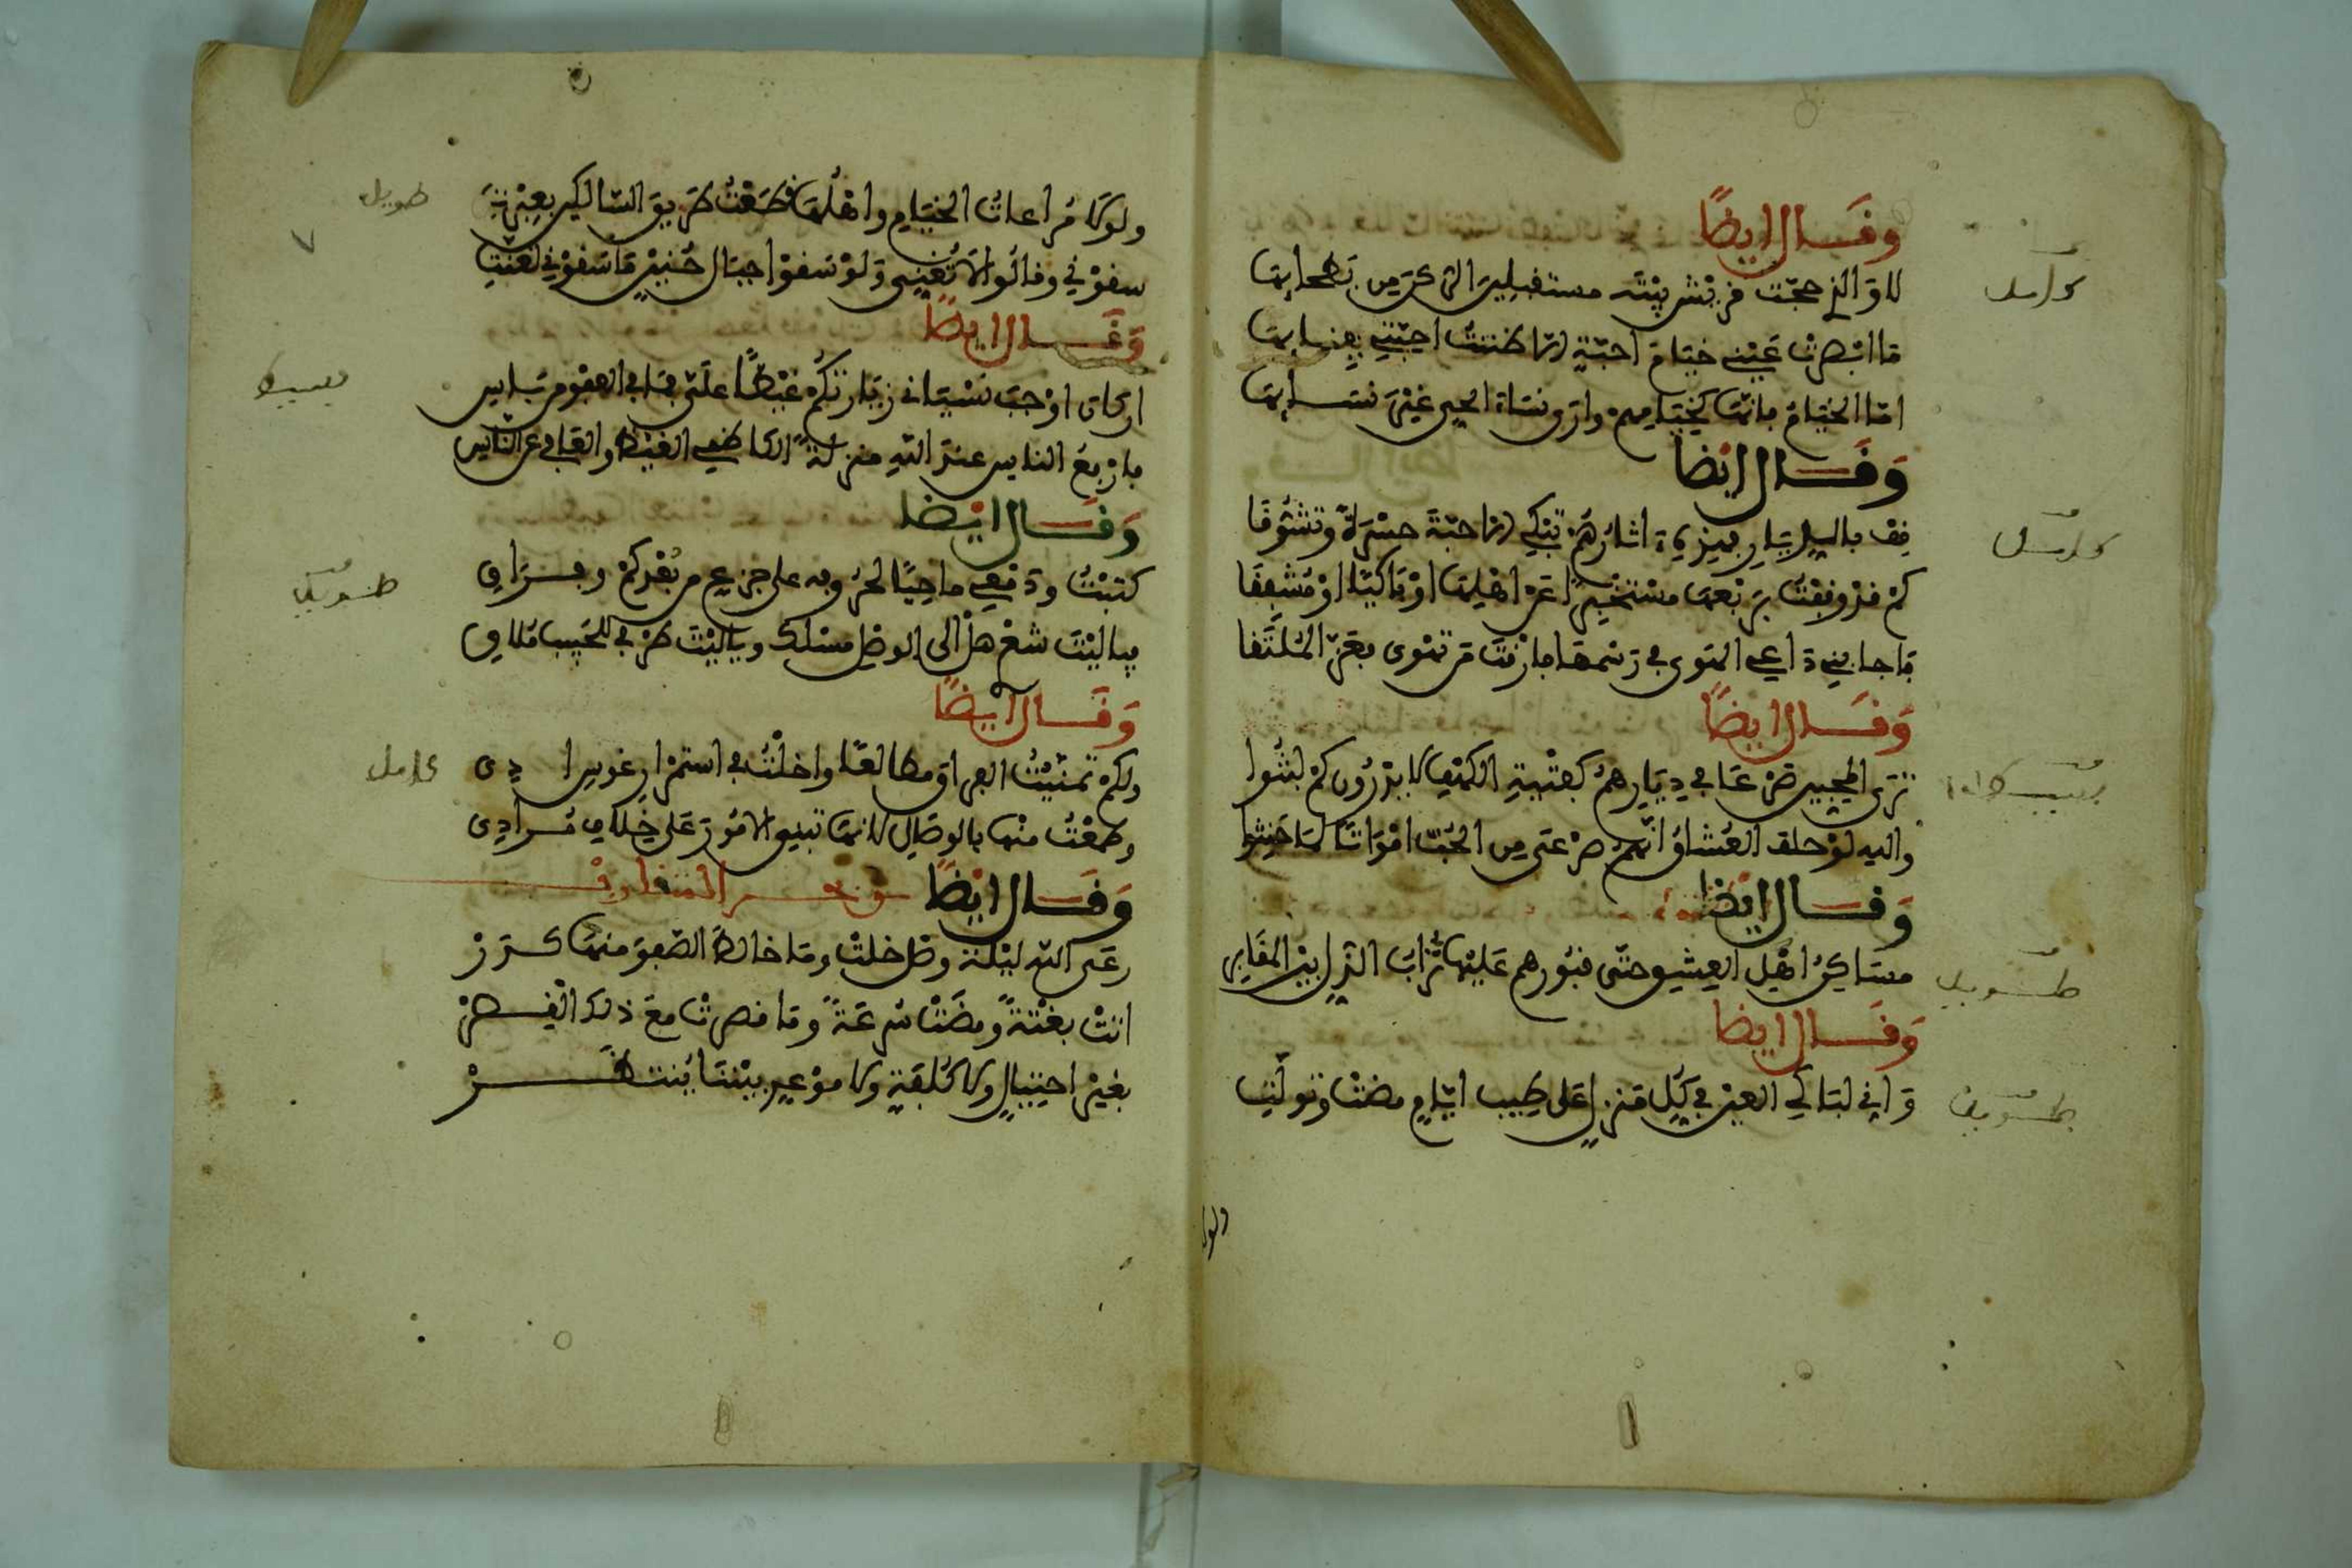 وقال ايضا
كامل
لا والذي حجت قريش بيته مستقبلين الركن من بطحائها
ما ابصرت عيني خيام احبة الا ظننت احبتي بفنائها
اما الخيام فانها كخيامهم وارى نساء الحي غير نسائها
وقال ايضا
كامل
قف بالديار فهذه اثارهم تبكي الاحبة حسرة وتشوقا
كم قد وقفت بربعها مستخبرا عن اهلها او باكيا او مشفقا
فاجابني داعي الهوى في رسمها فارقت من تهوى فعز الملتقا
وقال ايضا
بسيط
ترى المحبين صرعا في ديارهم كفتية الكهف لا يدرون كم لبثوا
والله لو حلف العشاق انهم صرعى من الحب امواتا لما حنثوا
وقال ايضا
طويل
مساكن اهل العشق حتى قبورهم عليها تراب الذل بين المقابر
وقال ايضا
طويل
واني لباكي العين في كل منزل على طيب ايام مضت وتولت
ولولا
ولولا مراعات الخيام واهلها قطعت طريق السالكين بعبرتي
طويل
سقوني وقالوا لا تغني ولو سقوا جبال حنين ما سقوني لغنت
وقال ايضا
بسيط
ان كان اوجب نسياني زيارتكم غيظا علي فما في العفو من باس
فارفع الناس عند الله منزلة الكاظمي الغيظ والعافي عن الناس
وقال ايضا
طويل
كتبت ودمعي ماحيا لحروفه على جزع من بعدكم وفراق
فيا ليت شعر هل الى الوصل مسلك ويا ليت طرفي للحبيب ملاق
وقال ايضا
كامل
ولكم تمنيت الفراق مغالطا واحلت في استمرار غرس ودادي
وطمعت منها بالوصال لانها تبني الامور على خلاف مرادي
وقال ايضا من بحر المتقارب
رعى الله ليلة وصل خلت وما خالط الصفو منها كدر
اتت بغتة ومضت سرعة وما قصرت مع ذلك القصر
بغير احتيال ولا كلفة ولا موعد بيننا ينتظر